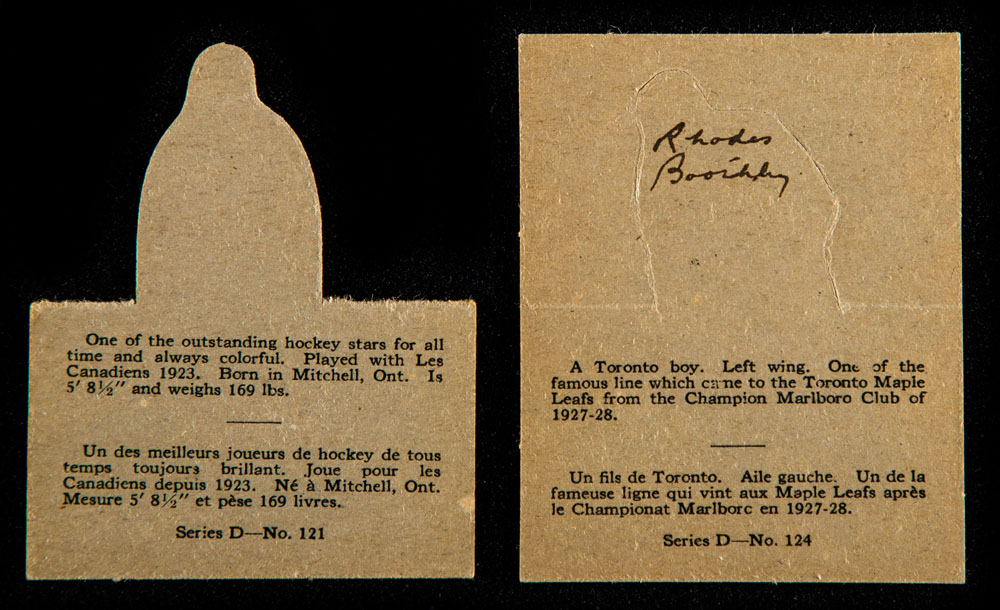 One of the outstanding hockey stars for all
time and always colorful. Played with Les
Canadiens 1923. Born in Mitchell, Ont. Is
5' 8½" and weighs 169 lbs.
Un des meilleurs joueurs de hockey de tous
temps toujours brillant. Joue pour les
Canadiens depuis 1923. Né à Mitchell, Ont.
Mesure 5' 8½" et pèse 169 livres.
Series D—No. 121
Rhodes
A Toronto boy. Left wing. One of the
famous line which came to the Toronto Maple
Leafs from the Champion Marlboro Club of
1927-28.
Un fils de Toronto. Aile gauche. Un de la
fameuse ligne qui vint aux Maple Leafs après
le Championat Marlboro en 1927-28.
Series D—No. 124